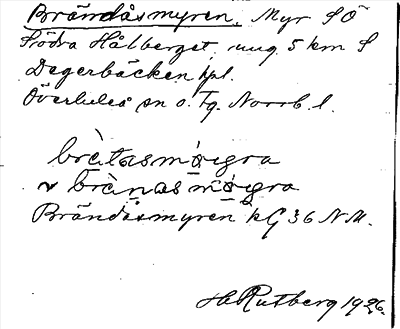 Brändåsmyren. Myr SÖ
Södra Hålberget, ung. 5 km S
Degerbäcken hpl.
Överluleå sn o. Tg. Norrb. l.
brètasmøigra
v brènasmøgra
Brändåsmyren kG 36 N.M.
H Rutberg 1926.